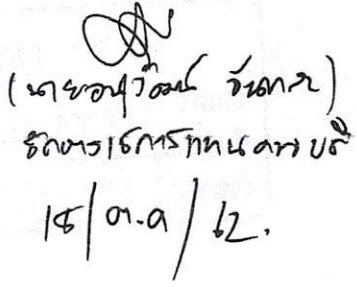 (นายอนุวัฒน์ จันทสะ)
รักษาราชการแทนคณบดี
18/ต.ค/62.